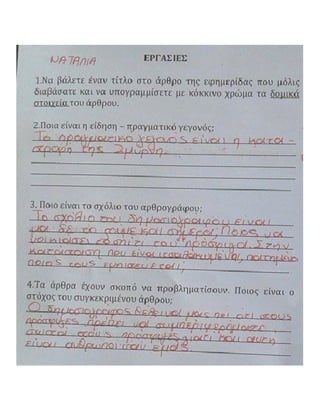 ΝΑΤΑΛΙΑ
ΕΡΓΑΣΙΕΣ
1.Να βάλετε έναν τίτλο στο άρθρο της εφημερίδας που μόλις
διαβάσατε και να υπογραμμίσετε με κόκκινο χρώμα τα δομικά
στοιχεία του άρθρου.
2.Ποια είναι η είδηση – πραγματικό γεγονός;
Το πραγματικό γεγονός είναι η κατα-
στροφή της Σμύρνης.
3. Ποιο είναι το σχόλιο του αρθρογράφου;
Το σχόλιο του δημοσιογράφου είναι
και σήμερα. Ποιος να
το σπίτι του πρόσφυγα. Στην
κατάσταση που είναι
ποιος τους εμπιστεύεται;
4.Τα άρθρα έχουν σκοπό να προβληματίσουν. Ποιος είναι ο
στόχος του συγκεκριμένου άρθρου;
Ο δημοσιογράφος θέλει να μας πει ότι στους
πρόσφυγες πρέπει να συμπεριφερόμαστε
σωστά στους πρόσφυγες γιατί και αυτοί
είναι άνθρωποι σαν εμάς.